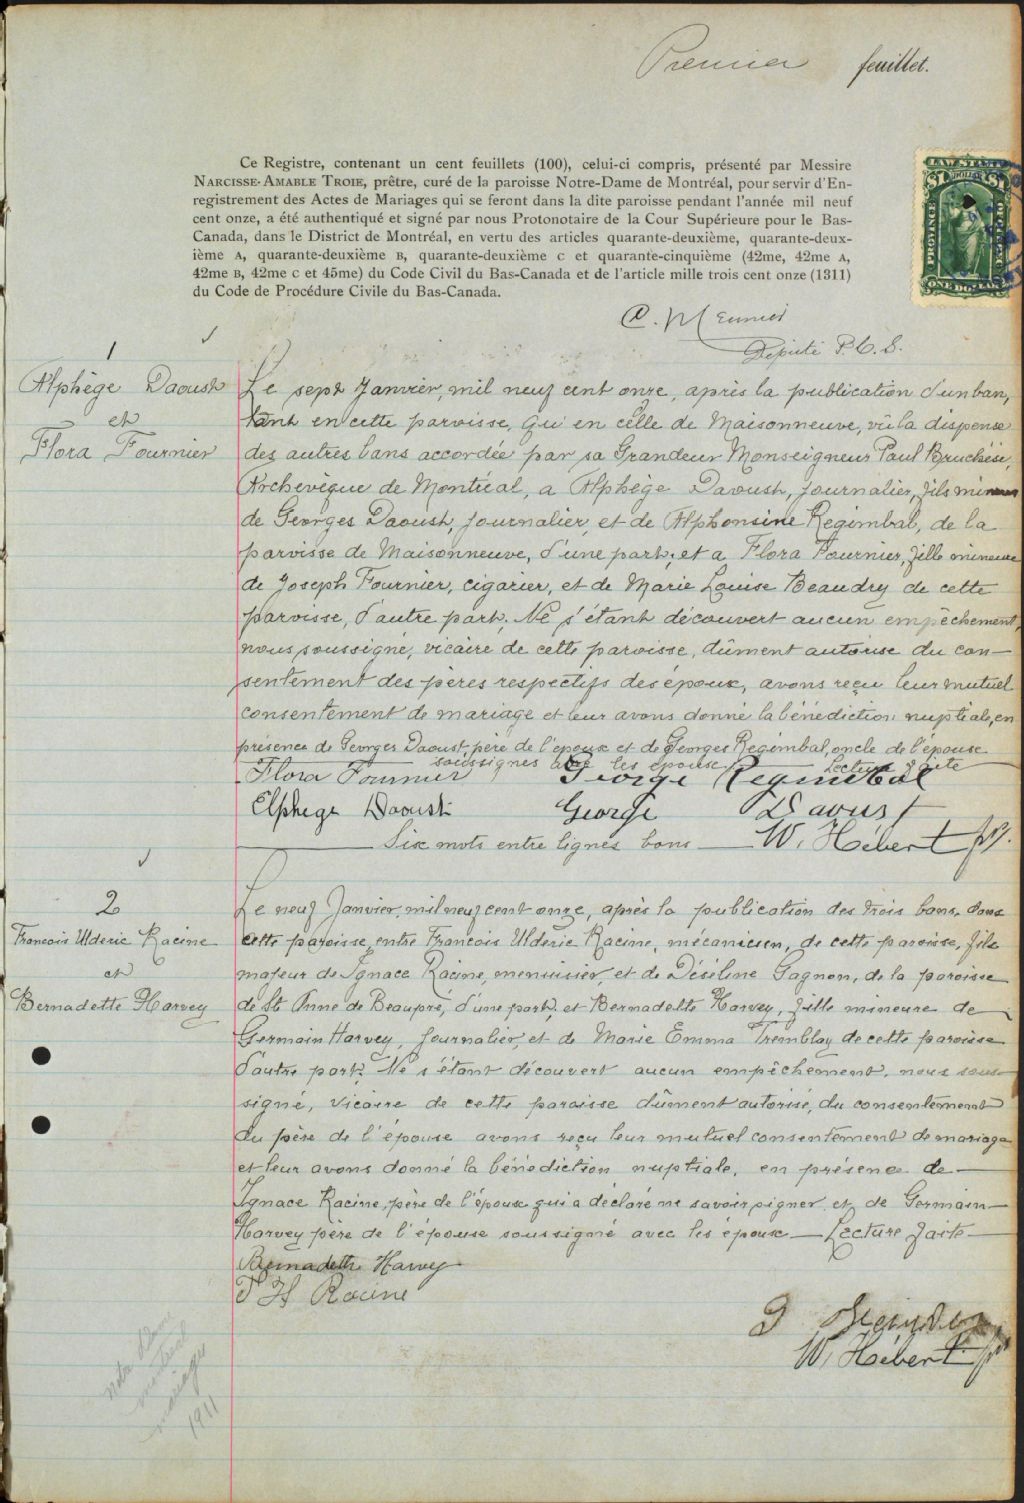 Premier feuillet.
Ce Registre, contenant un cent feuillets (100), celui-ci compris, présenté par Messire
NARCISSE-AMABLE TROIE, prêtre, curé de la paroisse Notre-Dame de Montréal, pour servir d'En-
registrement des Actes de Mariages qui se feront dans la dite paroisse pendant l'année mil neuf
cent onze, a été authentiqué et signé par nous Protonotaire de la Cour Supérieure pour le Bas-
Canada, dans le District de Montréal, en vertu des articles quarante-deuxième, quarante-deux-
ième A, quarante-deuxième B, quarante-deuxième C et quarante-cinquième (42me, 42me A,
42me B, 42me C et 45me) du Code Civil du Bas-Canada et de l'article mille trois cent onze (1311)
du Code de Procédure Civile du Bas-Canada.
LAW STAMP
$1 DOLLAR $1
PROVINCE OF QUEBEC
ONE DOLLAR
C. Meunier
Député P.C.S.
1
Alphège Daoust
et
Flora Fournier
Le sept Janvier, mil neuf cent onze, après la publication d'un ban,
tant en cette paroisse, qu'en celle de Maisonneuve, vû la dispense
des autres bans accordée par sa Grandeur Monseigneur Paul Bruchési,
Archevêque de Montréal, a Alphège Daoust, journalier, fils mineur
de Georges Daoust, journalier, et de Alphonsine Regimbal, de la
paroisse de Maisonneuve, d'une part, et a Flora Fournier, fille mineure
de Joseph Fournier, cigarier, et de Marie Louise Beaudry de cette
paroisse, d'autre part. Ne s'étant découvert aucun empêchement,
nous soussigné, vicaire de cette paroisse, dûment autorisé du con-
sentement des pères respectifs des époux, avons reçu leur mutuel
consentement de mariage et leur avons donné la bénédiction nuptiale, en
présence de Georges Daoust, père de l'époux et de Georges Regimbal, oncle de l'épouse
soussignés avec les époux Lecture faite
Flora Fournier George Regimbal
Elphege Daoust George Daoust
Six mots entre lignes bons W. Hébert ptr.
2
Francois Ulderic Racine
et
Bernadette Harvey
Le neuf Janvier, mil neuf cent onze, après la publication des trois bans, dans
cette paroisse, entre Francois Ulderic Racine, mécanicien, de cette paroisse, fils
majeur de Ignace Racine, menuisier, et de Déséline Gagnon, de la paroisse
de St Anne de Beaupré, d'une part, et Bernadette Harvey, fille mineure de
Germain Harvey, journalier, et de Marie Emma Tremblay de cette paroisse
d'autre part. Ne s'étant découvert aucun empêchement, nous sous-
signé, vicaire de cette paroisse dûment autorisé, du consentement
du père de l'épouse avons reçu leur mutuel consentement de mariage
et leur avons donné la bénédiction nuptiale, en présence de
Ignace Racine, père de l'époux qui a déclaré ne savoir signer et de Germain
Harvey père de l'épouse soussigné avec les époux Lecture faite
Bernadette Harvey
Racine
W. Hébert ptr
notre Dame
montreal
mariages
1911